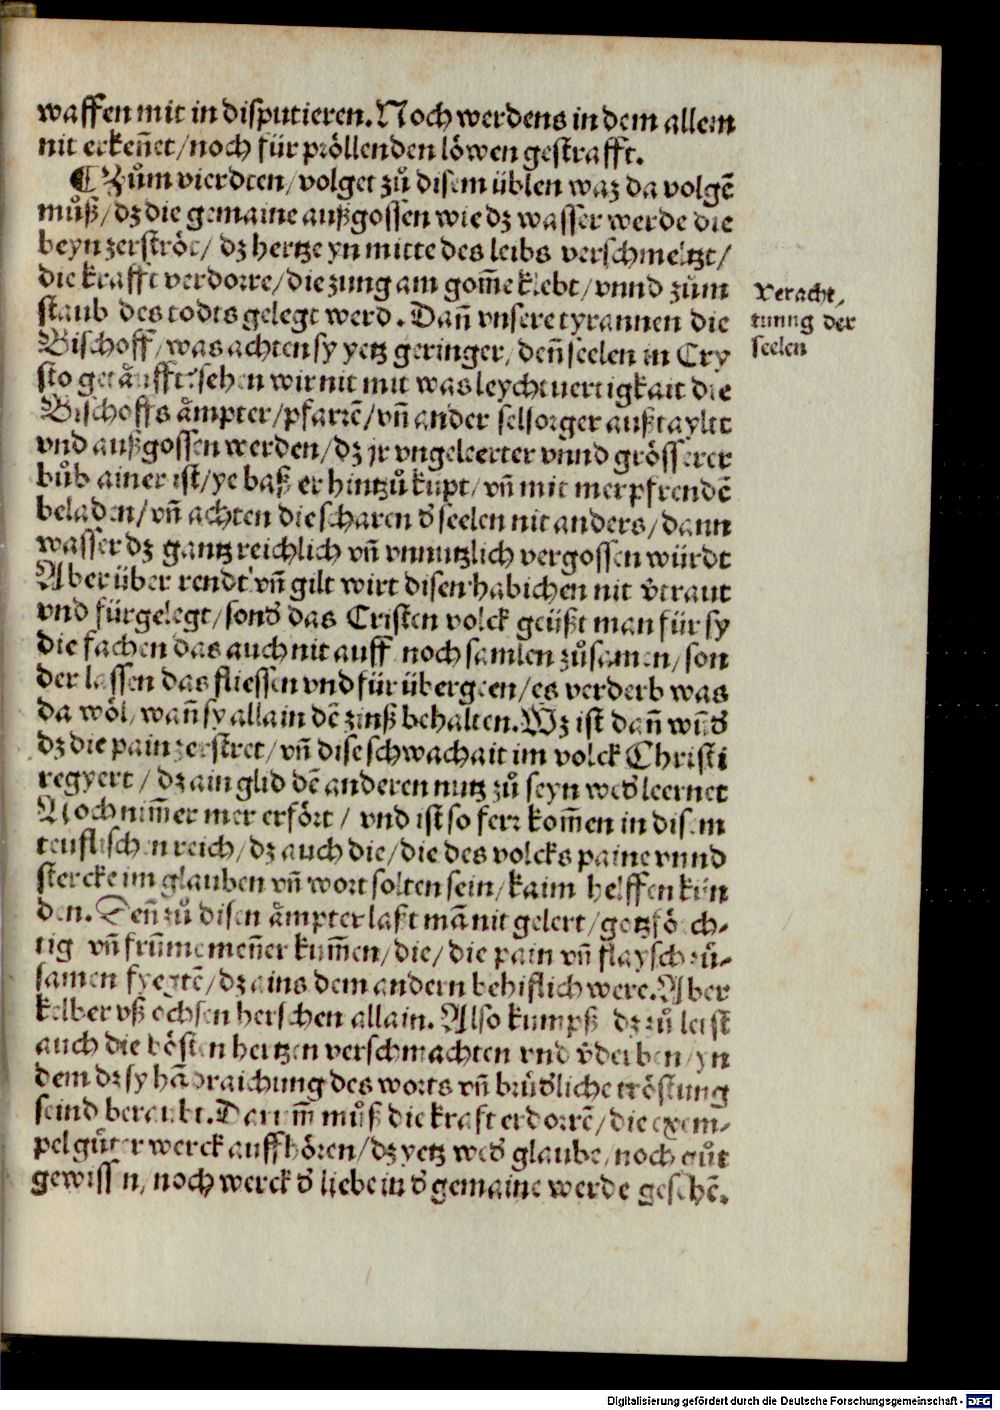 waffen mit in disputieren. Noch werdens in dem allem
nit erkeñet/noch für pröllenden löwen gestrafft.
¶ Zům vierdten/volget zů disem üblen waz da volgẽ
můß/dz die gemaine außgossen wie dz wasser werde die
beyn zerströt/ dz hertze yn mitte des leibs verschmeltzt/
die krafft verdorre/die zung am gom̃e klebt/vnnd zům
staub des todts gelegt werd. Dañ vnsere tyrannen die
Bischoff/was achten sy yetz geringer/deñ seelen in Cry
sto getåufft: sehen wir nit mit was leychtuertigkait die
Bischoffs åmpter/pfarrẽ/vñ ander selsorger außtaylet
vnd außgossen werden/dz jr vngeleerter vnnd grösserer
bůb ainer ist/ye baß er hintzů kupt/vñ mit mer pfrendẽ
beladen/vñ achten die scharen d̕ seelen nit anders/dann
wasser dz gantz reichlich vñ vnnutzlich vergossen würdt
Aber über rendt vñ gilt wirt disen habichen nit v̕traut
vnd fürgelegt/sond̕ das Cristen volck geüßt man für sy
die fachen das auch nit auff noch samlen zůsamen/son
der lassen das fliessen vnd für übergeen/es verderb was
da wöl/wañ sy allain dẽ zinß behalten. Wz ist dañ wũd̕
dz die pain zerstret/vñ dise schwachait im volck Christi
regyert/dz ain glid dẽ anderen nutz zů seyn wed̕ leernet
Noch nim̃er mer erfört/ vnd ist so ferr kom̃en in disem
teuflischen reich/dz auch die/die des volcks paine vnnd
stercke im glauben vñ wort solten sein/kaim helffen kün
den. Deñ zů disen åmpter laßt mã nit gelert/gotzförch-
tig vñ frũme meñer kum̃en/die/die pain vñ flaysch zů-
samen fyegtẽ/dz ains dem andern behiflich were. Aber
kelber vß ochsen herschen allain. Also kumpß dz zů leist
auch die bösten hertzen verschmachten vnd v̕derben/yn
dem dz sy hãdraichung des worts vñ brůd̕liche tröstung
seind beraubt. Darum̃ můß die kraft erdorrẽ/die exem-
pel gůter werck auffhören/dz yetz wed̕ glaube/noch gůt
gewissen/noch werck d̕ liebe in d̕ gemaine werde gesehẽ.
Veracht/
tunng der
seelen
Digitalisierung gefördert durch die Deutsche Forschungsgemeinschaft - DFG